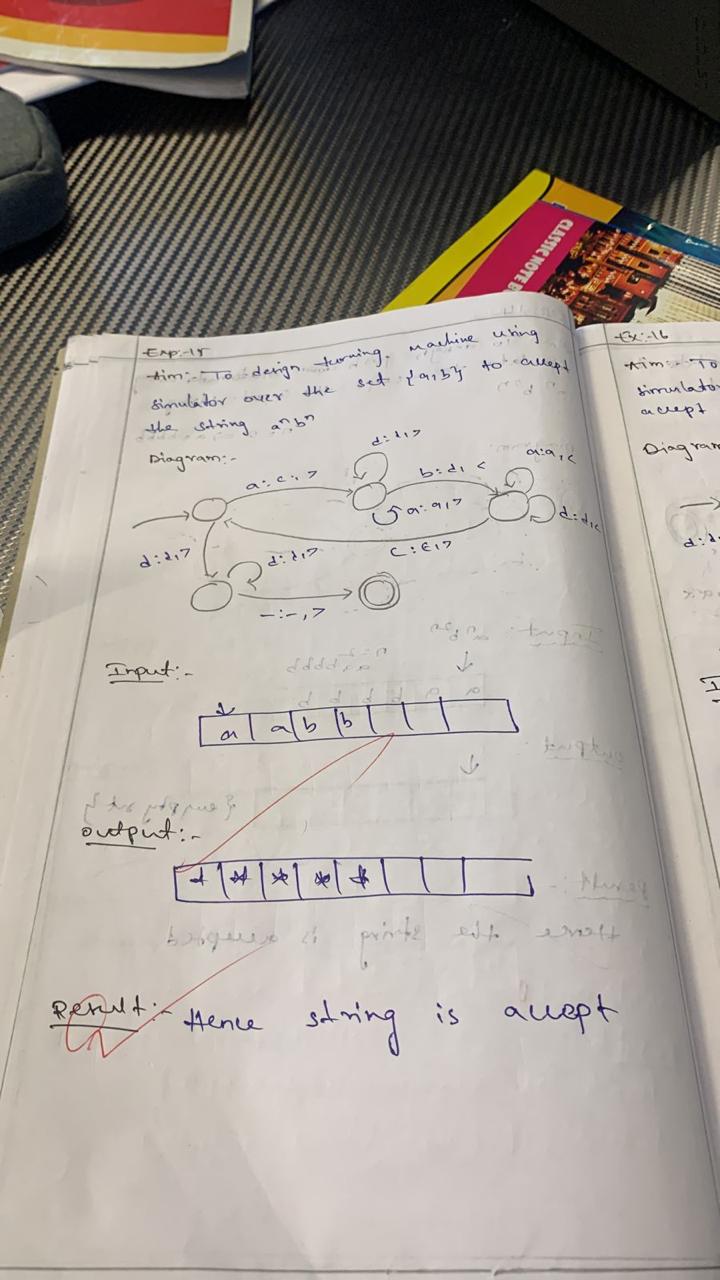 CLASSIC NOTE B
Exp:-15
Aim:- To design turning machine using
simulator over the set {a,b} to accept
the string aⁿbⁿ
Diagram:-
d:d,>
a:c,>
b:d,<
a:a,<
a:a,>
d:d,<
c:c,>
d:d,>
d:d,>
-:-,>
Input:-
a a b b
output:-
* * * * *
Result:- Hence string is accept
Ex:-16
Aim:- To
simulator
accept
Diagram
d:d
I